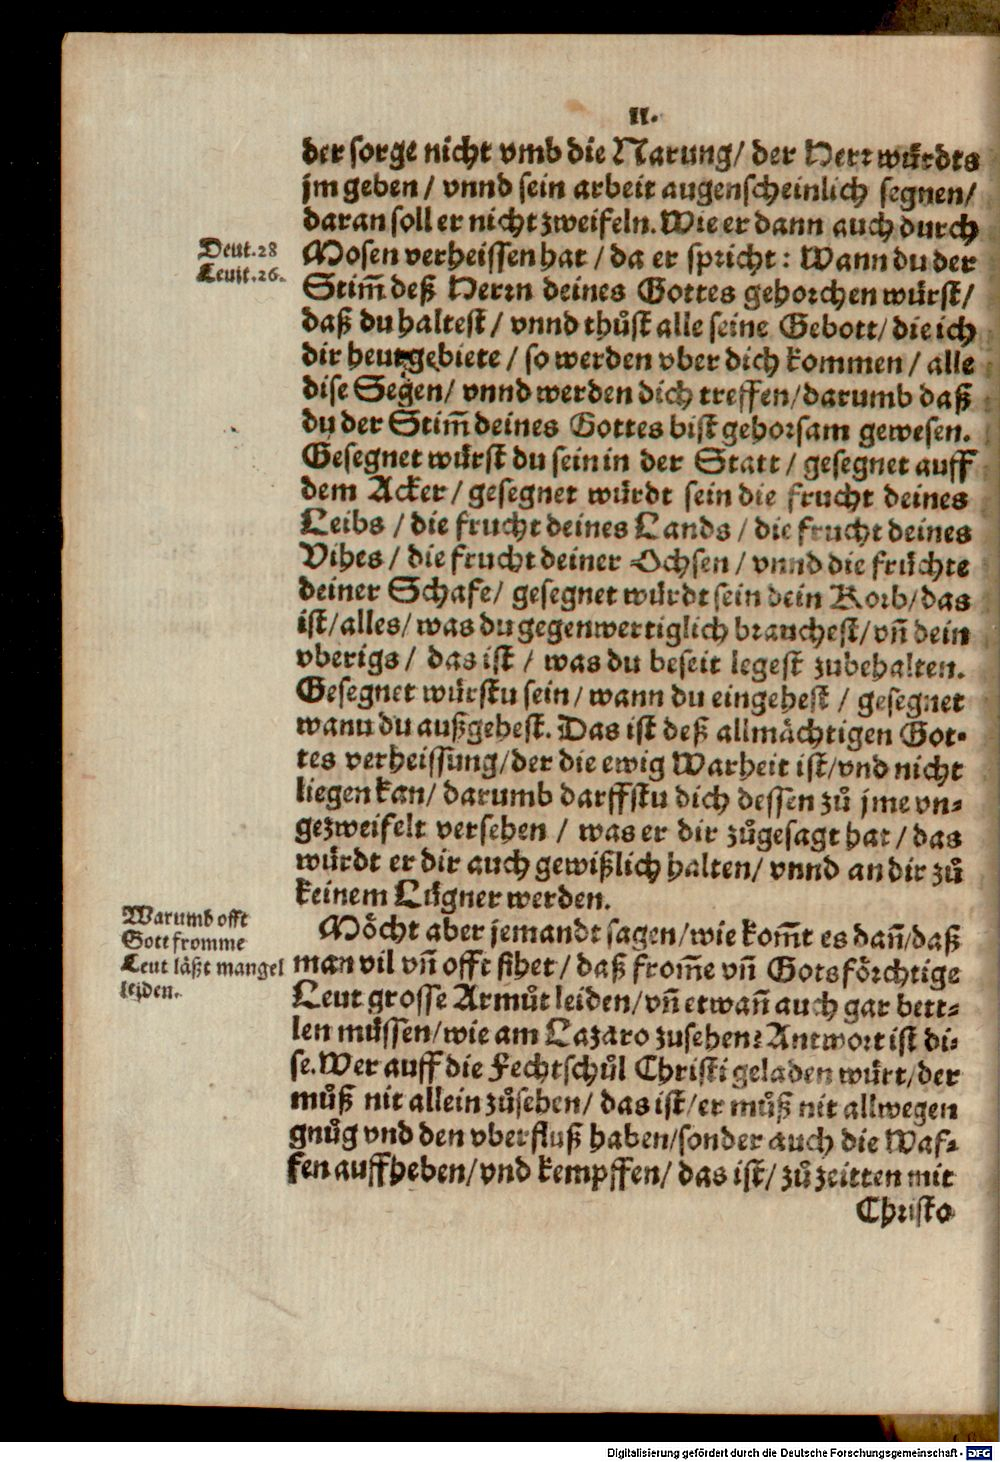 II.
der sorge nicht vmb die Narung/ der Herr wuͤrdts
jm geben / vnnd sein arbeit augenscheinlich segnen/
daran soll er nicht zweifeln. Wie er dann auch durch
Deut.28
Leuit.26.
Mosen verheissen hat / da er spricht: Wann du der
Stim̃ deß Herrn deines Gottes gehorchen wuͤrst/
daß du haltest / vnnd thuͦst alle seine Gebott/ die ich
dir heut gebiete / so werden vber dich kommen / alle
dise Segen/ vnnd werden dich treffen/darumb daß
du der Stim̃ deines Gottes bist gehorsam gewesen.
Gesegnet wuͤrst du sein in der Statt / gesegnet auff
dem Acker / gesegnet wuͤrdt sein die frucht deines
Leibs / die frucht deines Lands / die frucht deines
Vihes / die frucht deiner Ochsen / vnnd die fruͤchte
deiner Schafe/ gesegnet wuͤrdt sein dein Korb/das
ist/alles/ was du gegenwertiglich brauchest/vñ dein
vberigs / das ist / was du beseit legest zubehalten.
Gesegnet wuͤrstu sein/ wann du eingehest / gesegnet
wann du außgehest. Das ist deß allmaͤchtigen Got-
tes verheissung/der die ewig Warheit ist/vnd nicht
liegen kan/ darumb darffstu dich dessen zuͦ jme vn-
gezweifelt versehen / was er dir zuͦgesagt hat / das
wuͤrdt er dir auch gewißlich halten/ vnnd an dir zuͦ
keinem Luͤgner werden.
Warumb offt
Gott fromme
Leut laͤßt mangel
leiden.
Moͤcht aber jemandt sagen/wie kom̃t es dañ/daß
man vil vñ offt sihet / daß from̃e vñ Gotsfoͤrchtige
Leut grosse Armuͦt leiden/vñ etwañ auch gar bett-
len muͤssen/wie am Lazaro zusehen? Antwort ist di-
se. Wer auff die Fechtschuͦl Christi geladen wuͤrt/der
muͦß nit allein zuͦsehen/ das ist/er muͦß nit allwegen
gnuͦg vnd den vberfluß haben/sonder auch die Waf-
fen auffheben/vnd kempffen/ das ist/ zuͦ zeitten mit
Christo
Digitalisierung gefördert durch die Deutsche Forschungsgemeinschaft - DFG